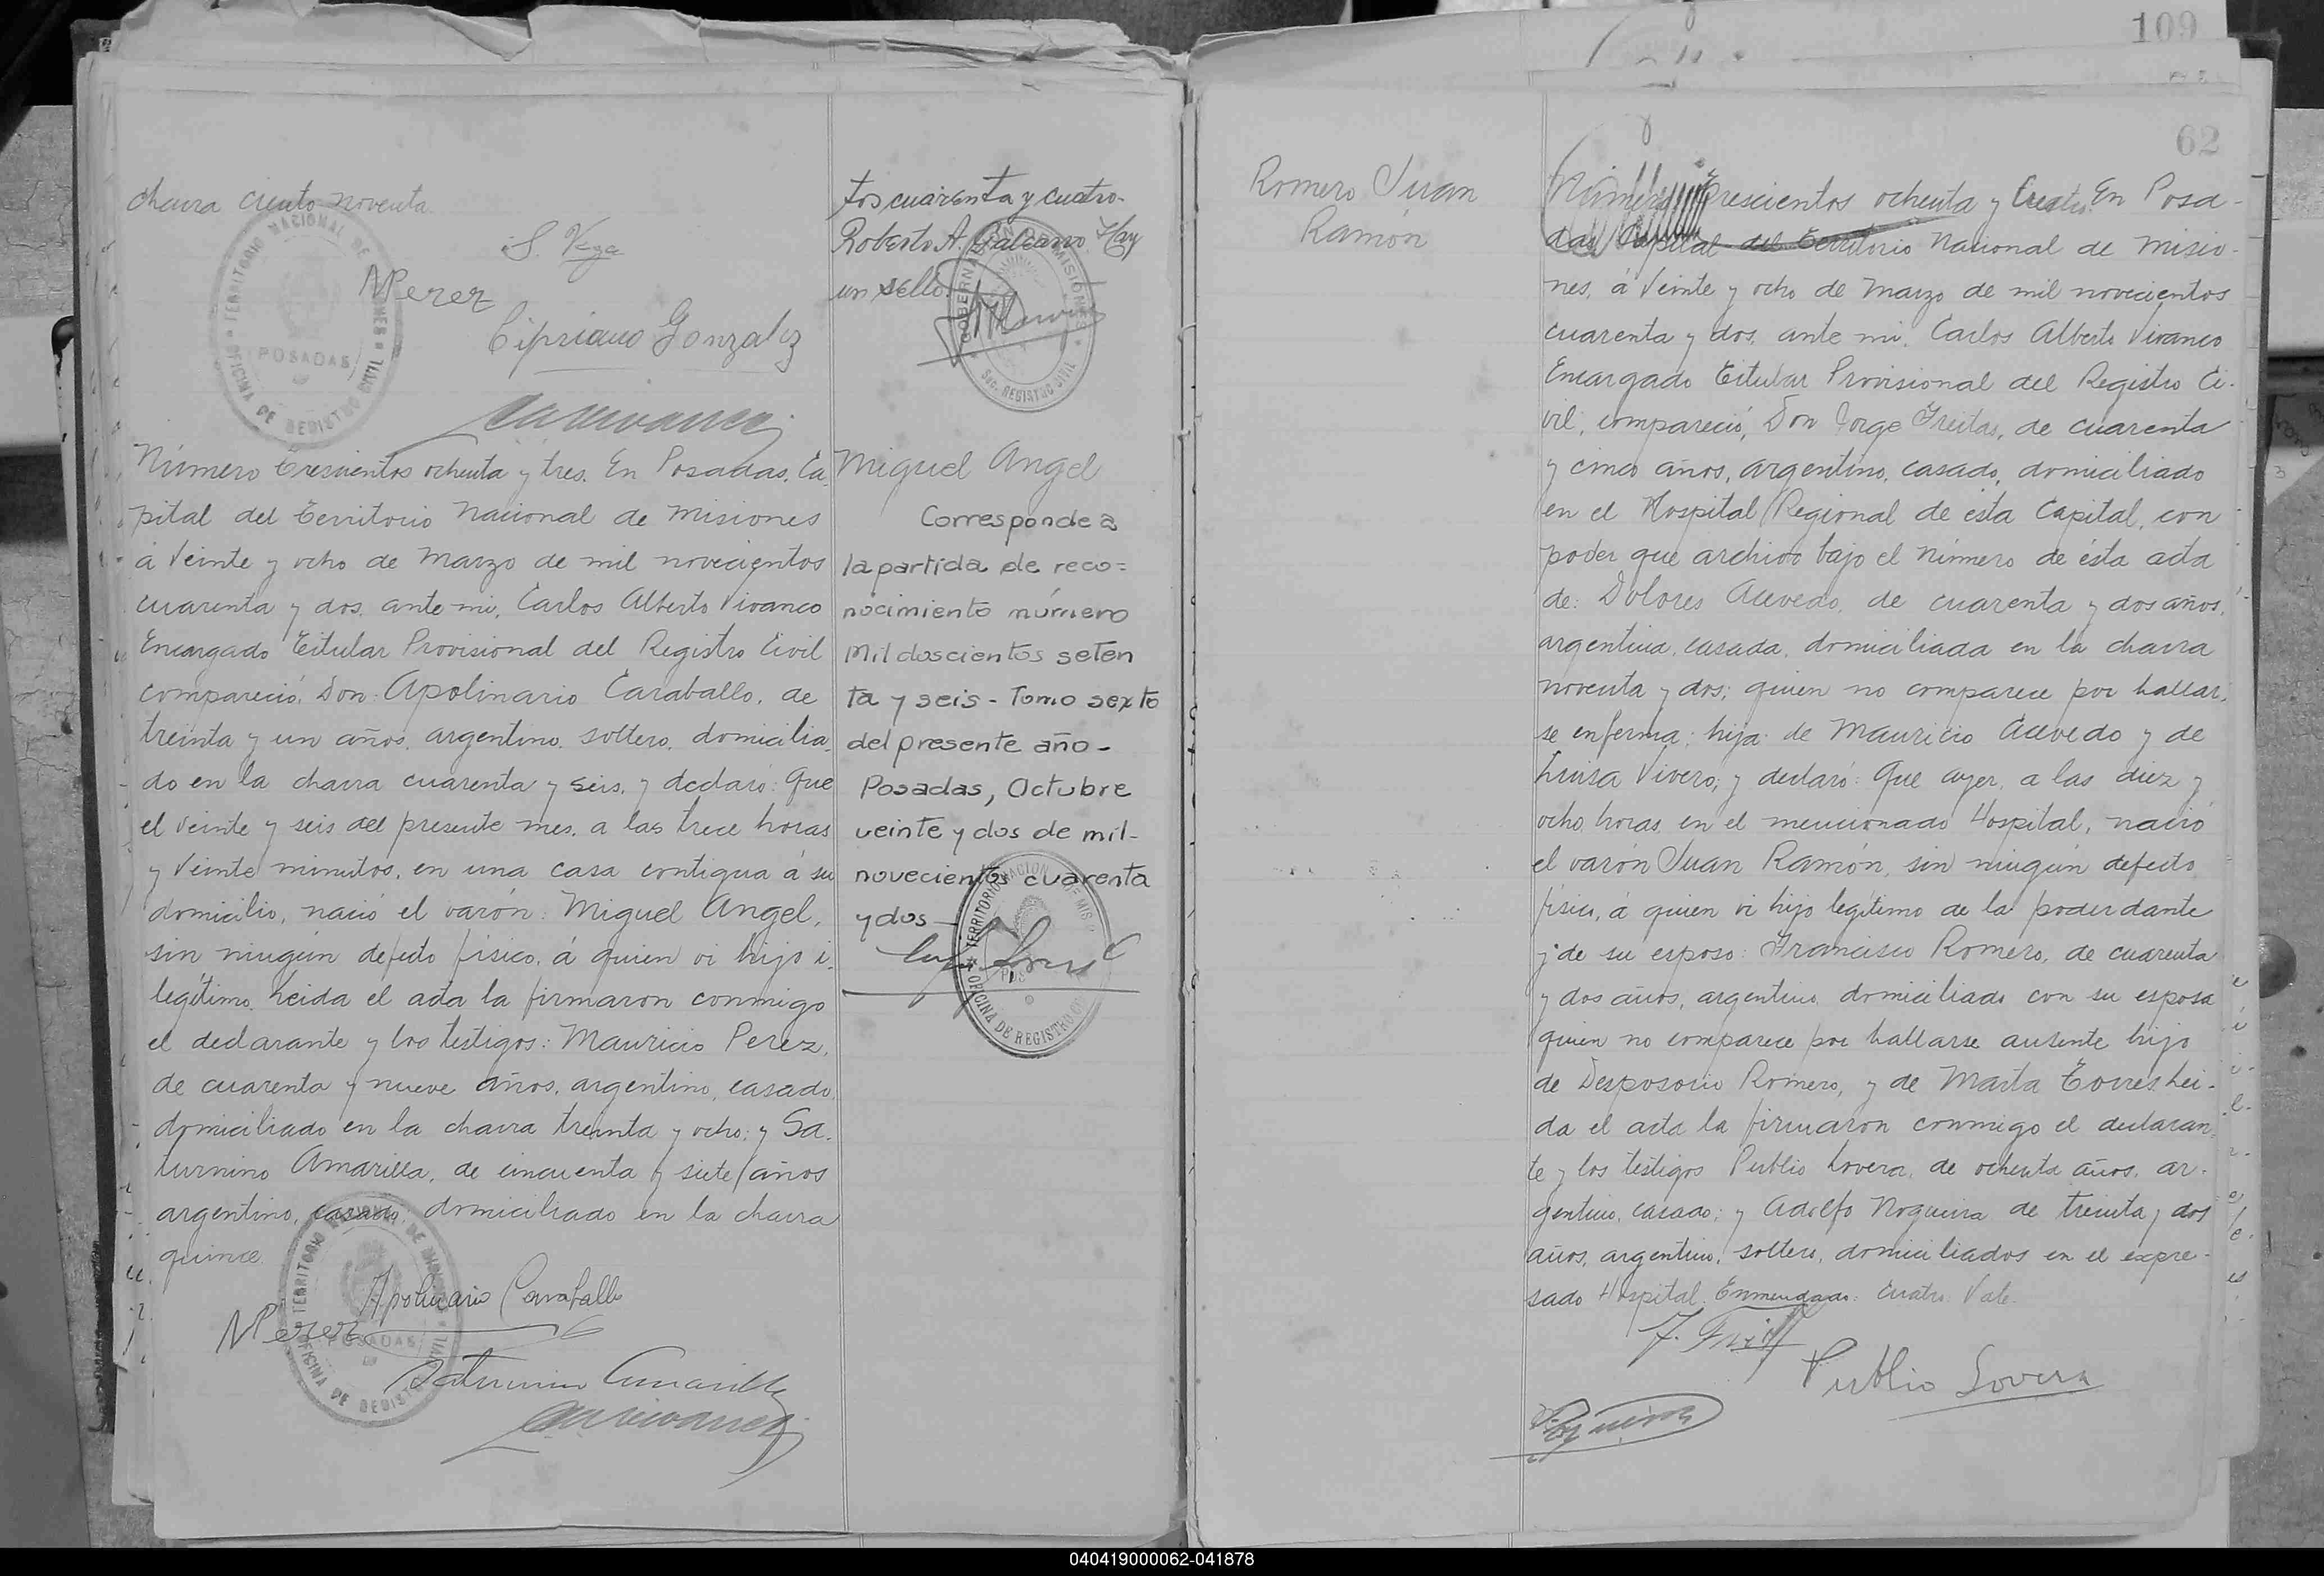 109
62
chacra ciento noventa.
S. Vega
MPerez
Cipriano Gonzalez
TERRITORIO NACIONAL DE MISIONES
POSADAS
OFICINA DE REGISTRO CIVIL
Número trescientos ochenta y tres. En Posadas, Ca
pital del Territorio Nacional de Misiones
á veinte y ocho de Marzo de mil novecientos
cuarenta y dos, ante mi, Carlos Alberto Vivanco
Encargado Titular Provisional del Registro Civil
compareció, Don: Apolinario Caraballo, de
treinta y un años, argentino, soltero, domicilia
do en la chacra cuarenta y seis, y declaró: Que
el veinte y seis del presente mes, a las trece horas
y veinte minutos, en una casa contigua á su
domicilio, nació el varón: Miguel Angel,
sin ningún defecto físico, á quien vi hijo i
legítimo. Leida el acta la firmaron conmigo
el declarante y los testigos: Mauricio Perez,
de cuarenta y nueve años, argentino, casado
domiciliado en la chacra treinta y ocho; y Sa
turnino Amarilla, de cincuenta y siete años
argentino, casado, domiciliado en la chacra
quince.
Apolinario Caraballo
MPerez
Saturnino Amarilla
TERRITORIO NACIONAL DE MISIONES
POSADAS
OFICINA DE REGISTRO CIVIL
tos cuarenta y cuatro.
Roberto A. Galeano. Hay
un sello.
GOBERNACION DE MISIONES
SEC. REGISTRO CIVIL
Miguel Angel
Corresponde a
la partida de reco=
nocimiento número
Mil doscientos seten
ta y seis - Tomo sexto
del presente año -
Posadas, Octubre
veinte y dos de mil-
novecientos cuarenta
y dos -
TERRITORIO NACIONAL DE MIS
OFICINA DE REGISTRO
Romero Juan
Ramón
Número Trescientos ochenta y Cuatro. En Posa-
das, Capital del Territorio Nacional de Misio-
nes, á veinte y ocho de Marzo de mil novecientos
cuarenta y dos, ante mi, Carlos Alberto Vivanco
Encargado Titular Provisional del Registro Ci-
vil, compareció, Don Jorge Freitas, de cuarenta
y cinco años, argentino, casado, domiciliado
en el Hospital Regional de ésta Capital, con
poder que archivo bajo el número de ésta acta
de: Dolores Acevedo, de cuarenta y dos años,
argentina, casada, domiciliada en la chacra
noventa y dos; quien no comparece por hallar-
se enferma; hija: de Mauricio Acevedo y de
Luisa Vivero; y declaró: Que ayer, a las diez y
ocho horas, en el mencionado Hospital, nació
el varón Juan Ramón, sin ningún defecto
físico, á quien vi hijo legítimo de la poderdante
y de su esposo: Francisco Romero, de cuarenta
y dos años, argentino, domiciliado con su esposa
quien no comparece por hallarse ausente hijo
de Desposorio Romero, y de Marta Torres. Lei-
da el acta la firmaron conmigo el declaran-
te y los testigos Publio Lovera, de ochenta años, ar-
gentino, casado; y Adolfo Nogueira de treinta y dos
años, argentino, soltero, domiciliados en el expre-
sado Hospital. Enmendado: Cuatro: Vale.
Publio Lovera
040419000062-041878